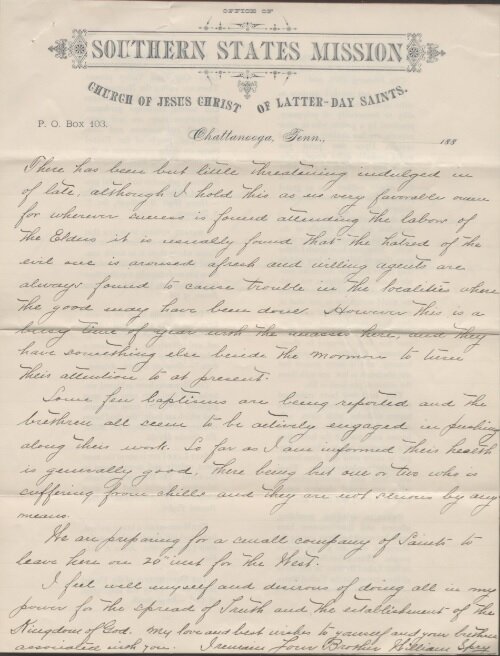 OFFICE OF
SOUTHERN STATES MISSION
CHURCH OF JESUS CHRIST OF LATTER-DAY SAINTS.
P. O. Box 103.
Chattanooga, Tenn., 188
There has been but little threatening indulged in
of late, although I hold this as no very favorable omen
for wherever success is found attending the labors of
the Elders it is usually found that the hatred of the
evil one is aroused afresh and willing agents are
always found to cause trouble in the localities where
the good may have been done. However this is a
busy time of year with the masses here, and they
have something else beside the Mormons to turn
their attention to at present.
Some few baptisms are being reported and the
brethren all seem to be actively engaged in pushing
along their work. So far as I am informed their health
is generally good, there being but one or two who is
suffering from chills and they are not serious by any
means.
We are preparing for a small company of Saints to
leave here on 20th inst for the West.
I feel well myself and desirous of doing all in my
power for the spread of Truth and the establishment of the
Kingdom of God. My love and best wishes to yourself and your brethren
associated with you. I remain Your Brother William Spry